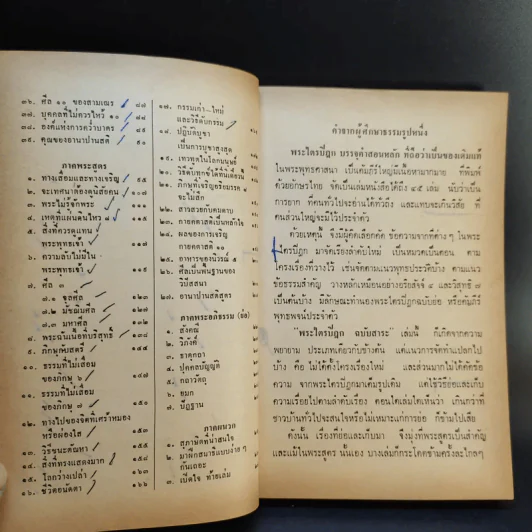 ๓๖. ศีล ๑๐ ของสามเณร ๘๗
๓๗. บุคคลที่ไม่ควรไหว้ ๑๐
๓๘. องค์แห่งการคว่ำบาตร ๘๙
๓๙. คุณของอานาปานสติ
ภาคพระสูตร
๑. ทางเสื่อมและทางเจริญ
๒. จะเทศน์ต้องดูนิสัยคน
๓. พระไม่รู้จักพระ
๔. เหตุที่แผ่นดินไหว ๘ ๑๑๕
๕. สิ่งที่ควรดูแทน
พระพุทธเจ้า ๑๑๗
๖. ความลับไม่มีใน
พระพุทธเจ้า
๗. ศีล ๓
๗.๑ จุลศีล ๑๒๓
๗.๒ มัชฌิมศีล ๑๒๗
๗.๓ มหาศีล
๘. พระฉันเนื้อที่บริสุทธิ์
๙. ภิกษุ
๑๐. ธรรมที่ไม่เสื่อม
ของภิกษุ ๖ ๑๔๗
๑๑. ธรรมที่ไม่เสื่อม
ของภิกษุ ๗
๑๒. ทางไปของจิตที่เศร้าหมอง
หรือผ่องใส ๑๕๓
๑๓. วิธีชนะตัณหา ๑๕๕
๑๔. สิ่งที่ทรงแสดงมาก
๑๕. โลกว่างเปล่า
๑๖. ชีวิตอนัตตา ๑๖๖
๑๗. กรรมเก่า-ใหม่
และวิธีดับกรรม
๑๘. ปฏิบัติบูชา
เป็นการบูชาสูงสุด
๑๙. เทวทูตในโลกมนุษย์
๒๐. วิธีดับทุกข์ได้ทันทีตอนนี้
๒๑. ภิกษุที่เจริญอริยมรรค ๘
จะไม่สึก
๒๒. สาวสวยกับคนตาบ
๒๓. กายคตาสติเป็นหลักใจ
๒๔. ผลของการเจริญ
กายคตาสติ ๑๐
๒๕. อาหารของนิวรณ์ ๕
๒๖. ศีลเป็นพื้นฐานของ
วิปัสสนา
๒๗. อานาปานสติสูตร
ภาคพระอภิธรรม (ย่อ)
๑. สังคณี
๒. วิภังค์
๓. ธาตุกถา
๔. ปุคคลบัญญัติ
๕. กถาวัตถุ
๖. ยมก
๗. ปัฏฐาน
ภาคผนวก
๑. สุภาษิตที่น่าสนใจ
๒. มาฝึกสมาธิแบบง่าย ๆ
กันเถอะ
๓. เปิดใจ ท้ายเล่ม
คำจากผู้ศึกษาธรรมรูปหนึ่ง
พระไตรปิฎก บรรจุคำสอนหลัก ที่ถือว่าเป็นของเดิมแท้
ในพระพุทธศาสนา เป็นคัมภีร์ใหญ่มีเนื้อหามากมาย ที่พิมพ์
ด้วยอักษรไทย จัดเป็นเล่มหนังสือได้ถึง ๔๕ เล่ม นับว่าเป็น
การยาก ที่คนทั่วไปจะอ่านได้ทั่วถึง และแทบจะเกินวิสัย ที่
คนส่วนใหญ่จะมีไว้ประจำตัว
ด้วยเหตุนี้ จึงมีผู้คัดเลือกคัด ข้อความจากที่ต่าง ๆ ในพระ
ไตรปิฎก มาจัดเรียงลำดับใหม่ เป็นหมวดเป็นตอน ตาม
โครงเรื่องที่วางไว้ เช่นจัดตามแนวพุทธประวัติบ้าง ตามแนว
ข้อธรรมสำคัญ วางหลักเหมือนอย่างอริยสัจจ์ ๔ และวิสุทธิ ๗
เป็นต้นบ้าง มีลักษณะทำนองพระไตรปิฎกฉบับย่อ หรือคัมภีร์
พุทธพจน์ประจำตัว
"พระไตรปิฎก ฉบับสาระ" เล่มนี้ ก็เกิดจากความ
พยายาม ประเภทเดียวกับข้างต้น แต่แนวการจัดทำแปลกไป
บ้าง คือ ไม่ได้ตั้งโครงเรื่องใหม่ และส่วนมากไม่ได้คัดข้อ
ความ จากพระไตรปิฎกมาเต็มรูปเดิม แต่ใช้วิธีย่อและเก็บ
ความเรื่อยไปตามลำดับเรื่อง ตอนใดเล่มใดเห็นว่า เกินกว่าที่
ชาวบ้านทั่วไปจะสนใจหรือไม่เหมาะแก่การย่อ ก็ข้ามไปเสีย
ดังนั้น เรื่องที่ย่อและเก็บมา จึงมุ่งที่พระสูตรเป็นสำคัญ
และแม้ในพระสูตร นั้นเอง บางเล่มก็กระโดดข้ามครั้งละไกลๆ